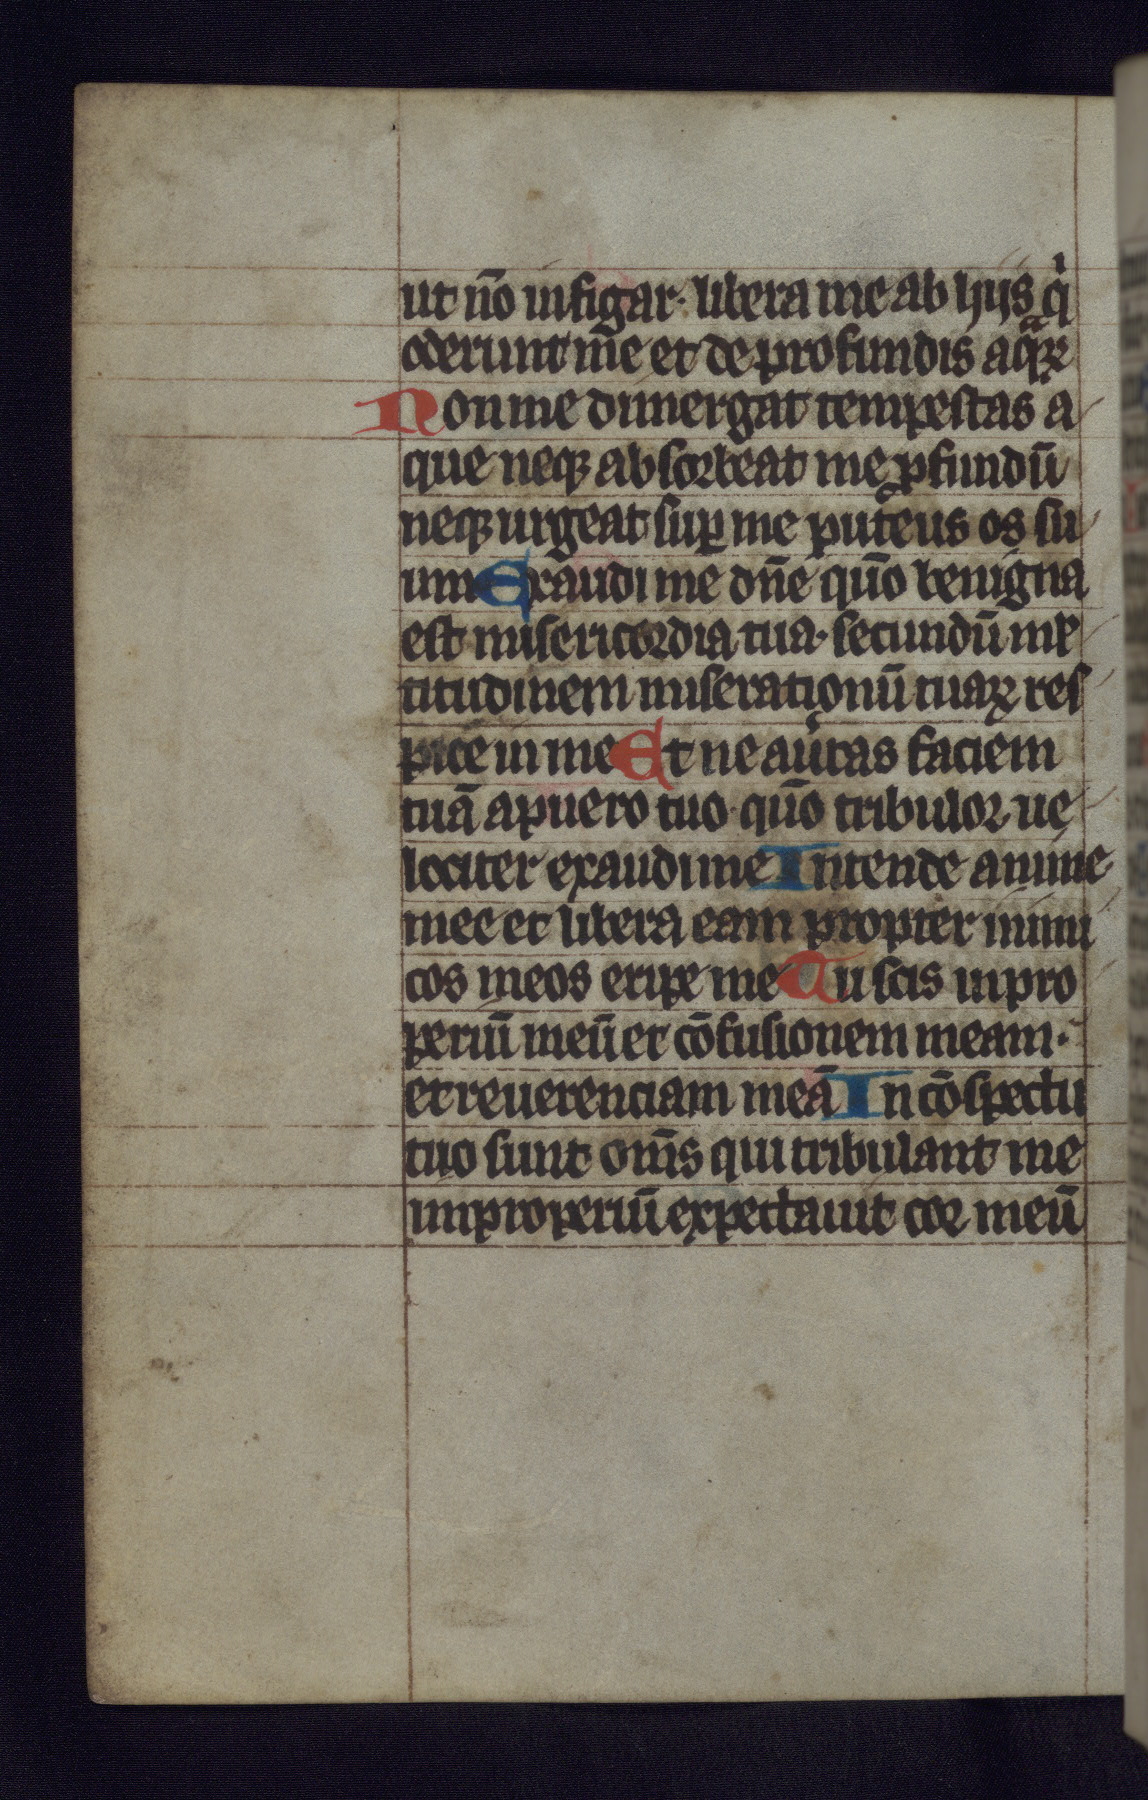 ut nō infigar· libera me ab hijs qͥ
oderunt me et de profundis aqͣꝝ
Non me dimergat tempestas a
que neqꝫ absorbeat me ꝓfundū
neqꝫ urgeat suꝑ me puteus os su
um Exaudi me dn̄e quō benigna
est misericordia tua· secundū ml̄
titudinem miserationū tuaꝝ res
pice in me Et ne aũtas faciem
tuā a puero tuo· quō tribulor ue
lociter exaudi me Intende anime
mee et libera eam propter inimi
cos meos eripe me Tu scis inpro
periū meū et cōfusionem meam·
et reuerenciam meā In cōspectu
tuo sunt om̄s qui tribulant me
improperiū expectauit cor meū